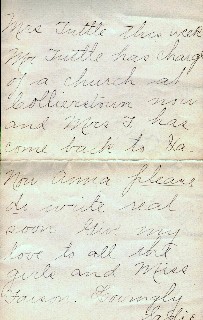 Mrs Tuttle this week
Mr Tuttle has charge
of a church at
Collierstown now
and Mrs T. has
come back to Va.
Now Anna please
do write real
soon Give my
love to all the
girls and Miss
Faison. Lovingly
Sallie